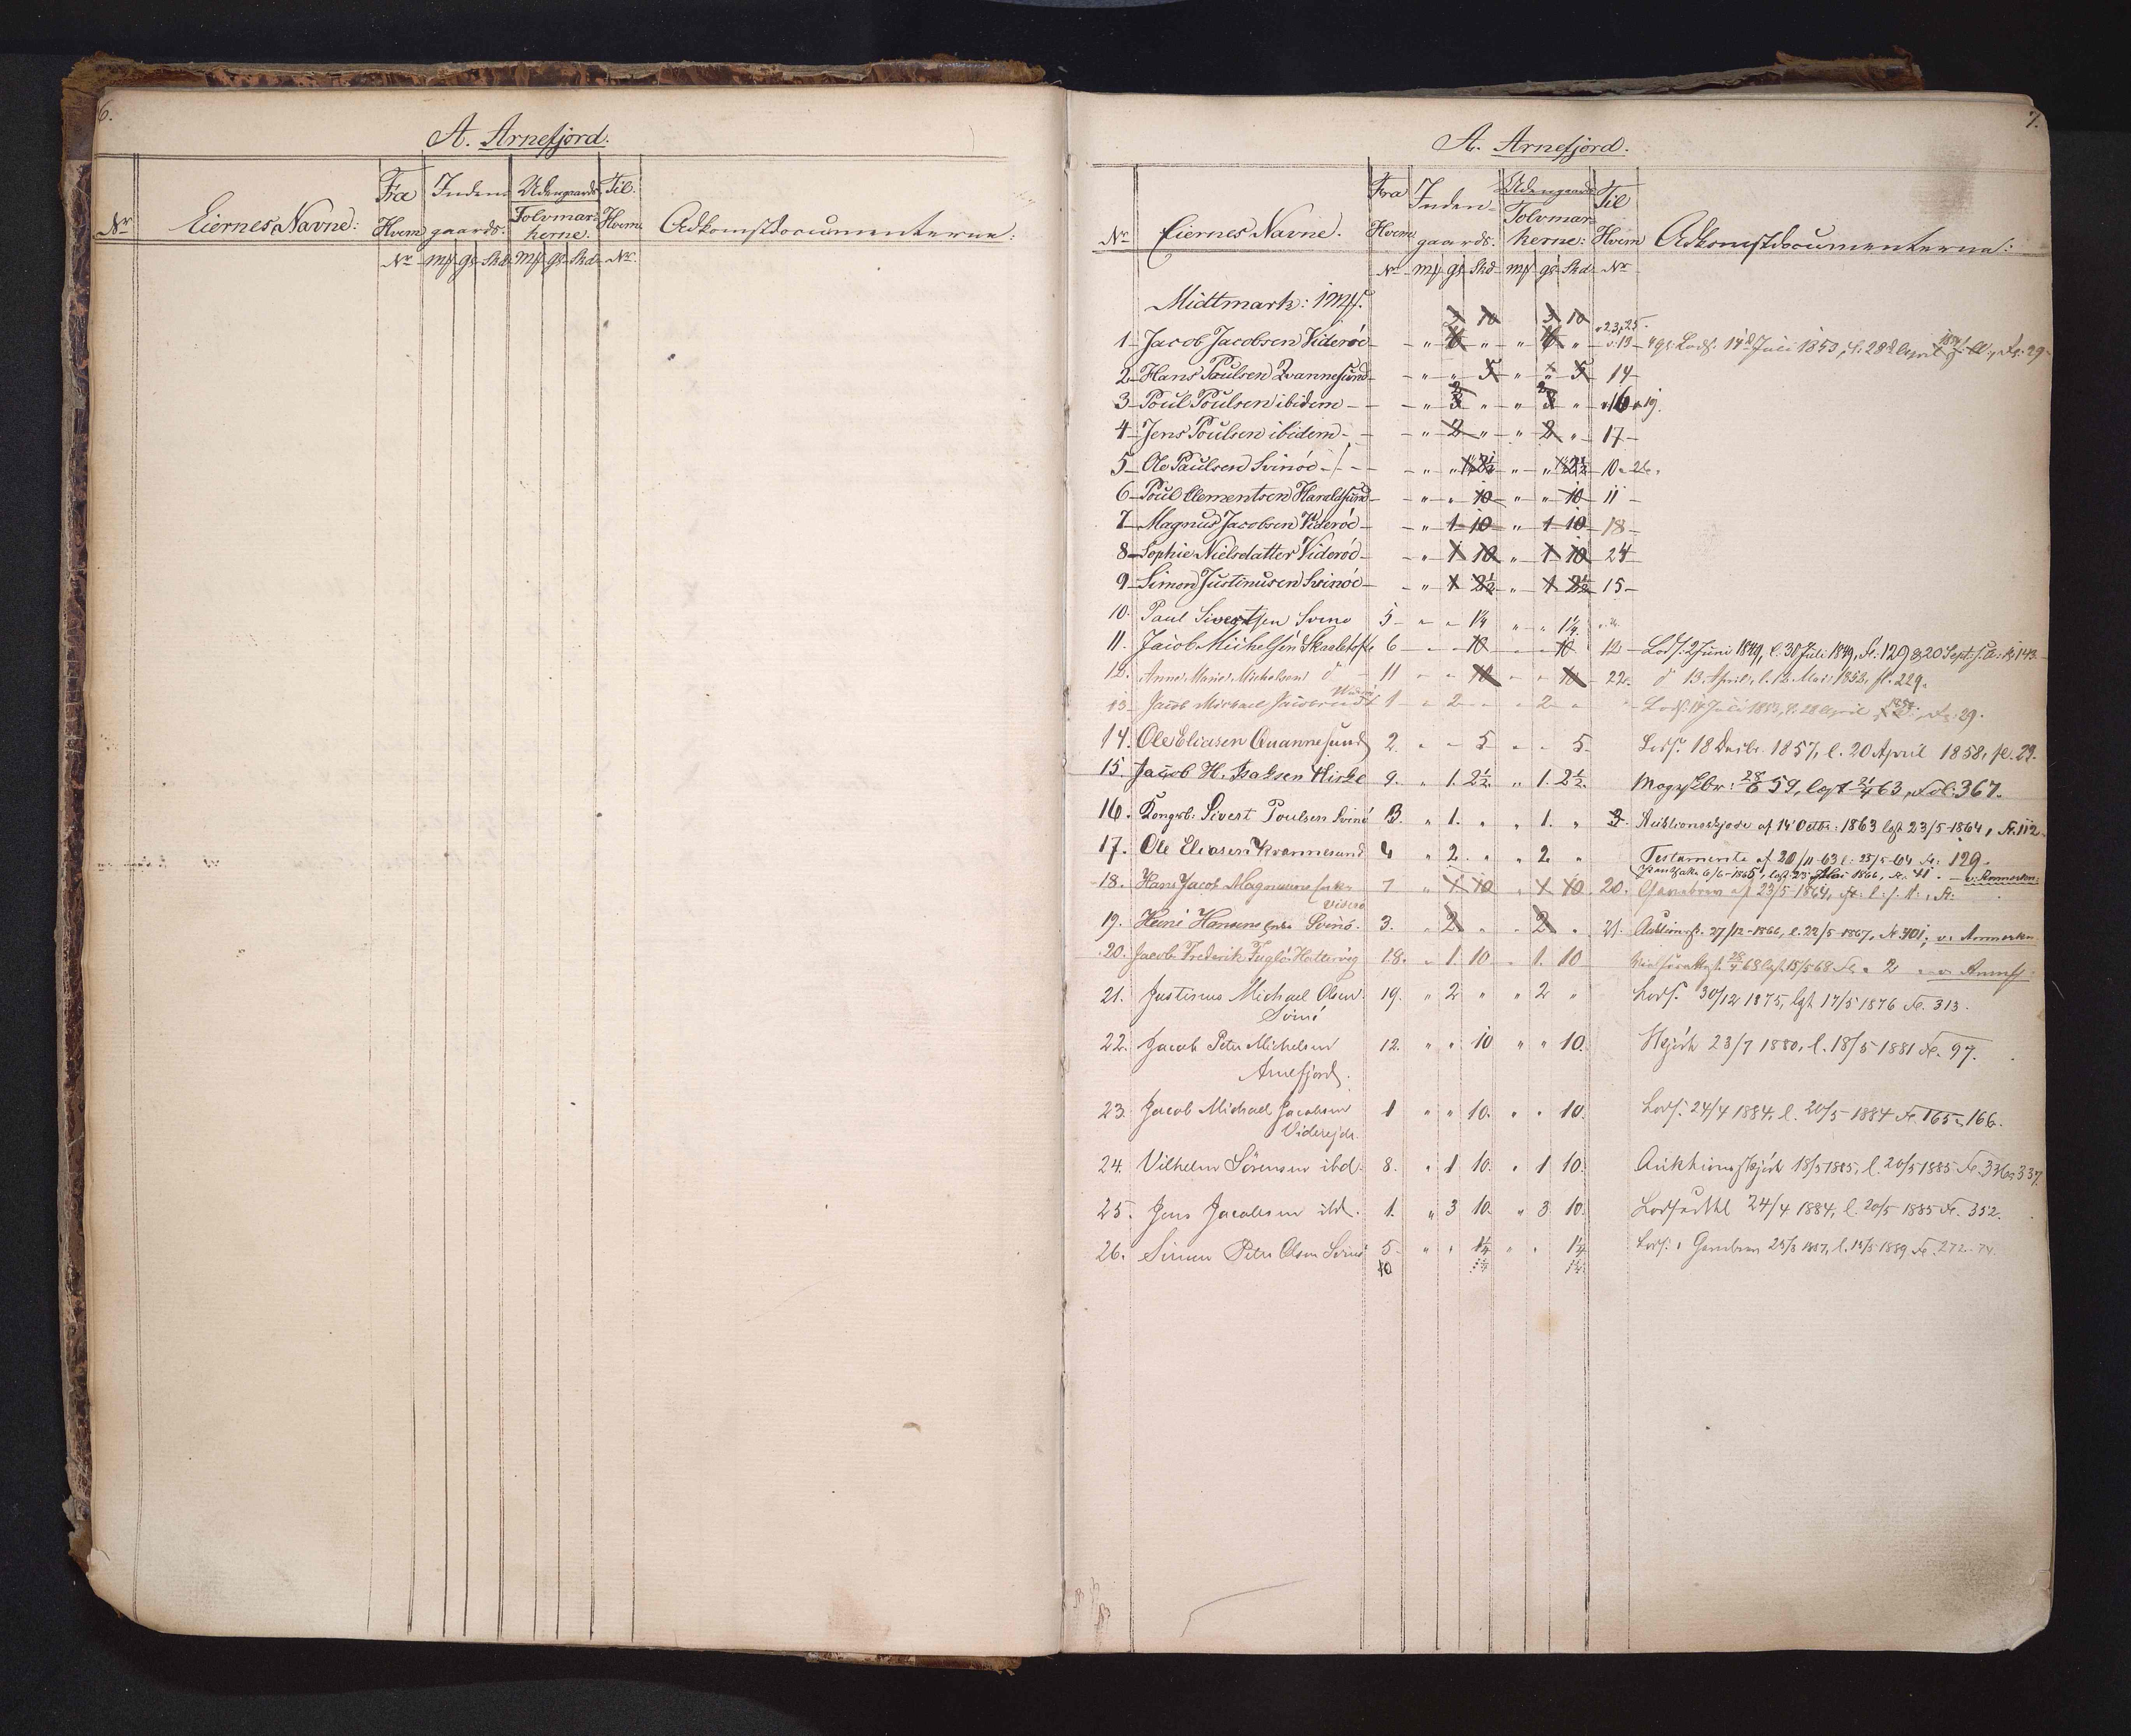 6.
A. Arnefjord.
Nr Eiernes Navne: Fra Hvem Indengaards. Udengaards Tolvmarkerne. Til Hvem Adkomstdocumenterne:
Nr mk gs Skd mk gs Skd Nr
7.
A. Arnefjord.
Nr Eiernes Navne. Fra Hvem Indengaards. Udengaards Tolvmarkerne: Til Hvem Adkomstdocumenterne:
Nr mk gs Skd mk gs Skd Nr
Midtmark: 1 mk.
3 10 3 10 23, 25.
1 Jacob Jacobsen Viderøe " 6 " " 6 " 13 4 gs. Lods. 14d Juli 1853, l. 28d April Fo: 29
2 Hans Poulsen Qvannesund " " 5 " " 5 14
3 Poul Poulsen ibidem " 3 " " 3 " 16 19.
4 Jens Poulsen ibidem " 2 " " 2 " 17
5 Ole Paulsen Svinöe " " 2½ " " 2½ 10 26.
6 Poul Clementsen Haraldsund " " 10 " " 10 11
7 Magnus Jacobsen Viderøe " 1 10 " 1 10 18
8 Sophie Nielsdatter Viderøe " 1 10 " 1 10 24
9 Simon Justinusen Svinöe " 1 2½ " 1 2½ 15
10. Paul Sivertsen Svinø 5 " " 1¼ " " 1¼
11. Jacob Michelsen Skaaletofte 6 " " 10 " " 10 12 Lods. 2 Juni 1849, l. 30 Juli 1849, Fo: 129 & 20 Sept. s. A. 143
12. Anne Marie Michelsen do 11 " " 10 " " 10 22. do 13 April, l. 12 Mai 1858, fo. 229.
13 Jacob Michael Jacobsen 1 " 2 " " 2 " Lods. 14 Juli 1853, l. 28 April Fo: 29.
14. Ole Eliasen Quannesund 2. " " 5 " " 5 Lods. 18 Decbr. 1857, l. 20 April 1858, fo. 29.
15. Jacob H. Isaksen Kirke 9. " 1. 2½ " 1. 2½. Magesk.br: 28/6 59, lagt 21/4 63, Fol: 367.
16. Kongsb: Sivert Poulsen Svinö 3. " 1. " " 1. " Auktionsskjøde af 14 Octbr. 1863 lagt 23/5-1864, Fo. 112
17. Ole Eliasen Kvannesund 4 " 2. " " 2. " Testamente af 20/11-63 l: 23/5-64 Fo: 129.
18. Hans Jacob Magnussens Enke 7 " 1 10 " 1 10 20. Gavebrev af 23/5-1864,
Viderø
19. Heine Hansens Enke Svinö. 3. " 2 " " 2 " 21. Auktionssk. 27/12-1866, l. 22/5-1867, Fo 401; v. Anmerkn
20. Jacob Frederik Fuglö Hattervig 18. " 1 10 " 1. 10 28/4 68 lagt 15/5 68 Fo. 2
21. Justinus Michael Olsen 19. " 2 " " 2 " Lods. 30/12 1875, lgt 17/5 1876 Fo. 313.
Svinö
22. Jacob Peter Michelsen 12. " " 10 " " 10. Skjöde 23/7 1880, l. 18/5 1881 Fo. 97.
Arnefjord.
23. Jacob Michael Jacobsen 1 " " 10. " " 10. Lods. 24/4 1884, l. 20/5-1884 Fo. 165-166.
Viderejde.
24. Vilhelm Sörensen ibd. 8. " 1 10. " 1 10. Auktionsskjöde 18/5 1885, l. 20/5 1885 Fo. 336-337.
25. Jens Jacobsen ibd. 1. " 3 10. " 3 10. Lodsedtel 24/4 1884, l. 20/5 1885 Fo. 352.
26. Simon Peter Olsen Svinö 5 " " 1¼ " " 1¼ Lods. Gavebrev 25/3 1887, l. 15/5 1889 Fo. 272-74.
10 1¼ 1¼